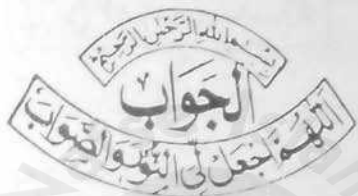 بِسْمِ اللهِ الرَّحْمٰنِ الرَّحِيْمِ
الجَوَابُ
اَللّٰهُمَّ اجْعَلْ لِّى النُّوْرَ وَالصَّوَابَ